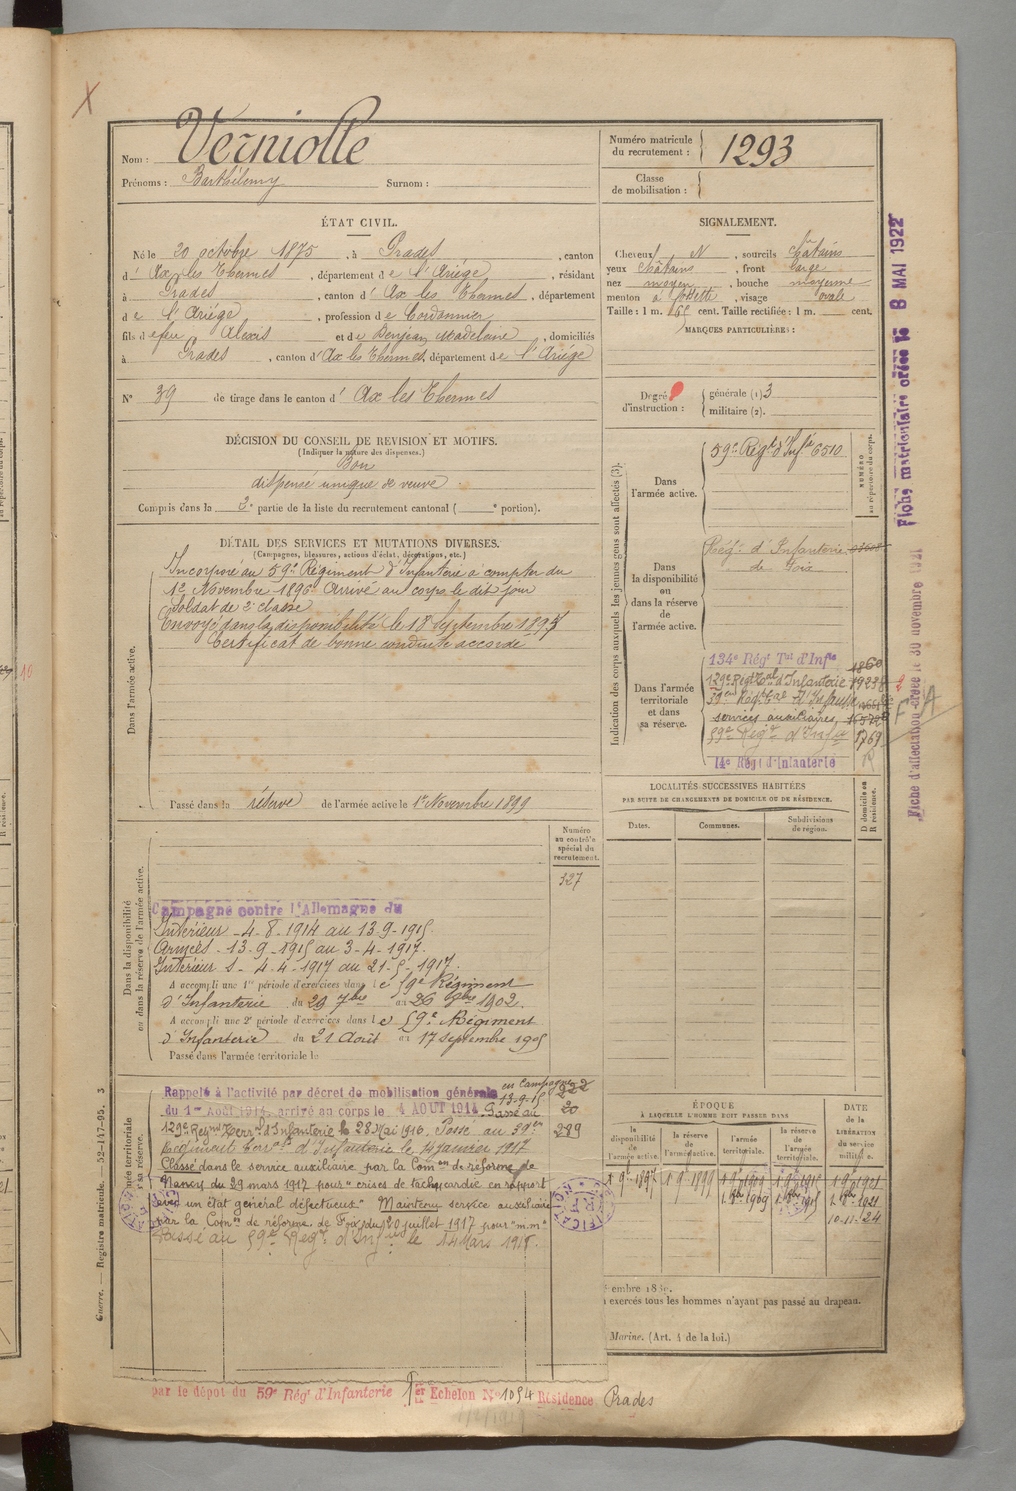 X
Nom : Verniolle
Prénoms : Barthélemy Surnom :
Numéro matricule du recrutement : 1293
Classe de mobilisation :
ÉTAT CIVIL.
Né le 20 octobre 1875, à Prades, canton
d' Ax les Thermes, département de l'Ariége, résidant
à Prades, canton d' Ax les Thermes, département
de l'Ariége, profession de Cordonnier
fils de feu Alexis et de Benjean Madeleine, domiciliés
à Prades, canton d' Ax les Thermes, département de l'Ariége
N° 39 de tirage dans le canton d' Ax les Thermes
SIGNALEMENT.
Cheveux N, sourcils châtains
yeux châtains, front large
nez moyen, bouche moyenne
menton à fossette, visage ovale
Taille : 1 m. 65 cent. Taille rectifiée : 1 m. cent.
MARQUES PARTICULIÈRES :
Degré d'instruction : générale (1) 3
militaire (2).
DÉCISION DU CONSEIL DE REVISION ET MOTIFS.
(Indiquer la nature des dispenses.)
Bon
dispensé unique de veuve
Compris dans la 2e partie de la liste du recrutement cantonal ( e portion).
DÉTAIL DES SERVICES ET MUTATIONS DIVERSES.
(Campagnes, blessures, actions d'éclat, décorations, etc.)
Dans l'armée active.
Incorporé au 59e Régiment d'Infanterie à compter du
1er Novembre 1896 Arrivé au corps le dit jour
Soldat de 2e classe
Envoyé dans la disponibilité le 18 Septembre 1897
Certificat de bonne conduite accordé
Passé dans la réserve de l'armée active le 1er Novembre 1899
Indication des corps auxquels les jeunes gens sont affectés (3).
NUMÉRO au répertoire du corps.
Dans l'armée active.
59e Régt d'Infie 6510
Dans la disponibilité ou dans la réserve de l'armée active.
Régt d'Infanterie
de Foix
Dans l'armée territoriale et dans sa réserve.
134e Régt Tal d'Infie 1860
129e Régt Tal d'Infanterie
39em Régt Tal d'Infanterie
services auxiliaires
59e Régt d'Infie 1769
14e Régt d'Infanterie
LOCALITÉS SUCCESSIVES HABITÉES
PAR SUITE DE CHANGEMENTS DE DOMICILE OU DE RÉSIDENCE.
Dates. Communes. Subdivisions de région. D domicile ou R résidence.
Dans la disponibilité ou dans la réserve de l'armée active.
Numéro au contrôle spécial du recrutement.
327
Campagne contre l'Allemagne du
Intérieur - 4-8-1914 au 13-9-1915
Armées - 13-9-1915 au 3-4-1917.
Intérieur S - 4-4-1917 au 21-5-1917.
A accompli une 1re période d'exercices dans le 59e Régiment
d'Infanterie du 29 7bre au 26 8bre 1902.
A accompli une 2e période d'exercices dans le 59e Régiment
d'Infanterie du 21 Août au 17 Septembre 1905
Passé dans l'armée territoriale le
Rappelé à l'activité par décret de mobilisation générale en Campagne 222
du 1er Août 1914, arrivé au corps le 4 AOUT 1914. 13-9-15 Passé au 20
129e Régnt Terral d'Infanterie le 28 Mai 1916. Passé au 39em 289
Régiment Territorial d'Infanterie le 14 Janvier 1917
Classé dans le service auxiliaire par la Comon de réforme de
Nancy du 29 mars 1917 pour "crises de tachycardie en rapport
avec un état général défectueux" Maintenu service auxiliaire
par la Comon de réforme de Foix du 20 juillet 1917 pour "m.m"
Passé au 59e Régt d'Infie le 14 Mars 1918.
ÉPOQUE
À LAQUELLE L'HOMME DOIT PASSER DANS
la disponibilité de l'armée active. la réserve de l'armée active. l'armée territoriale. la réserve de l'armée territoriale.
DATE DE LA LIBÉRATION du service militaire.
1 9e 1897 1 9e 1899 1 9e 1909 1 9e 1915 1 9e 1921
1 8bre 1909 1 8bre 1915 1 8bre 1921
10-11-24
exercés tous les hommes n'ayant pas passé au drapeau.
Marine. (Art. 4 de la loi.)
par le dépôt du 59e Régt d'Infanterie 1er Echelon N° 1094 Résidence Prades
Guerre. — Registre matricule. — 52-147-95. 3
Fiche matriculaire créée le 8 MAI 1922
Fiche d'affectation créée le 30 novembre 1921